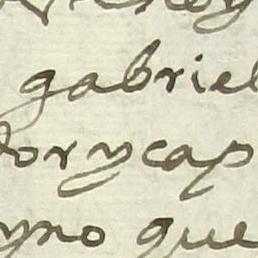 gabriel
dor y cap
yno que